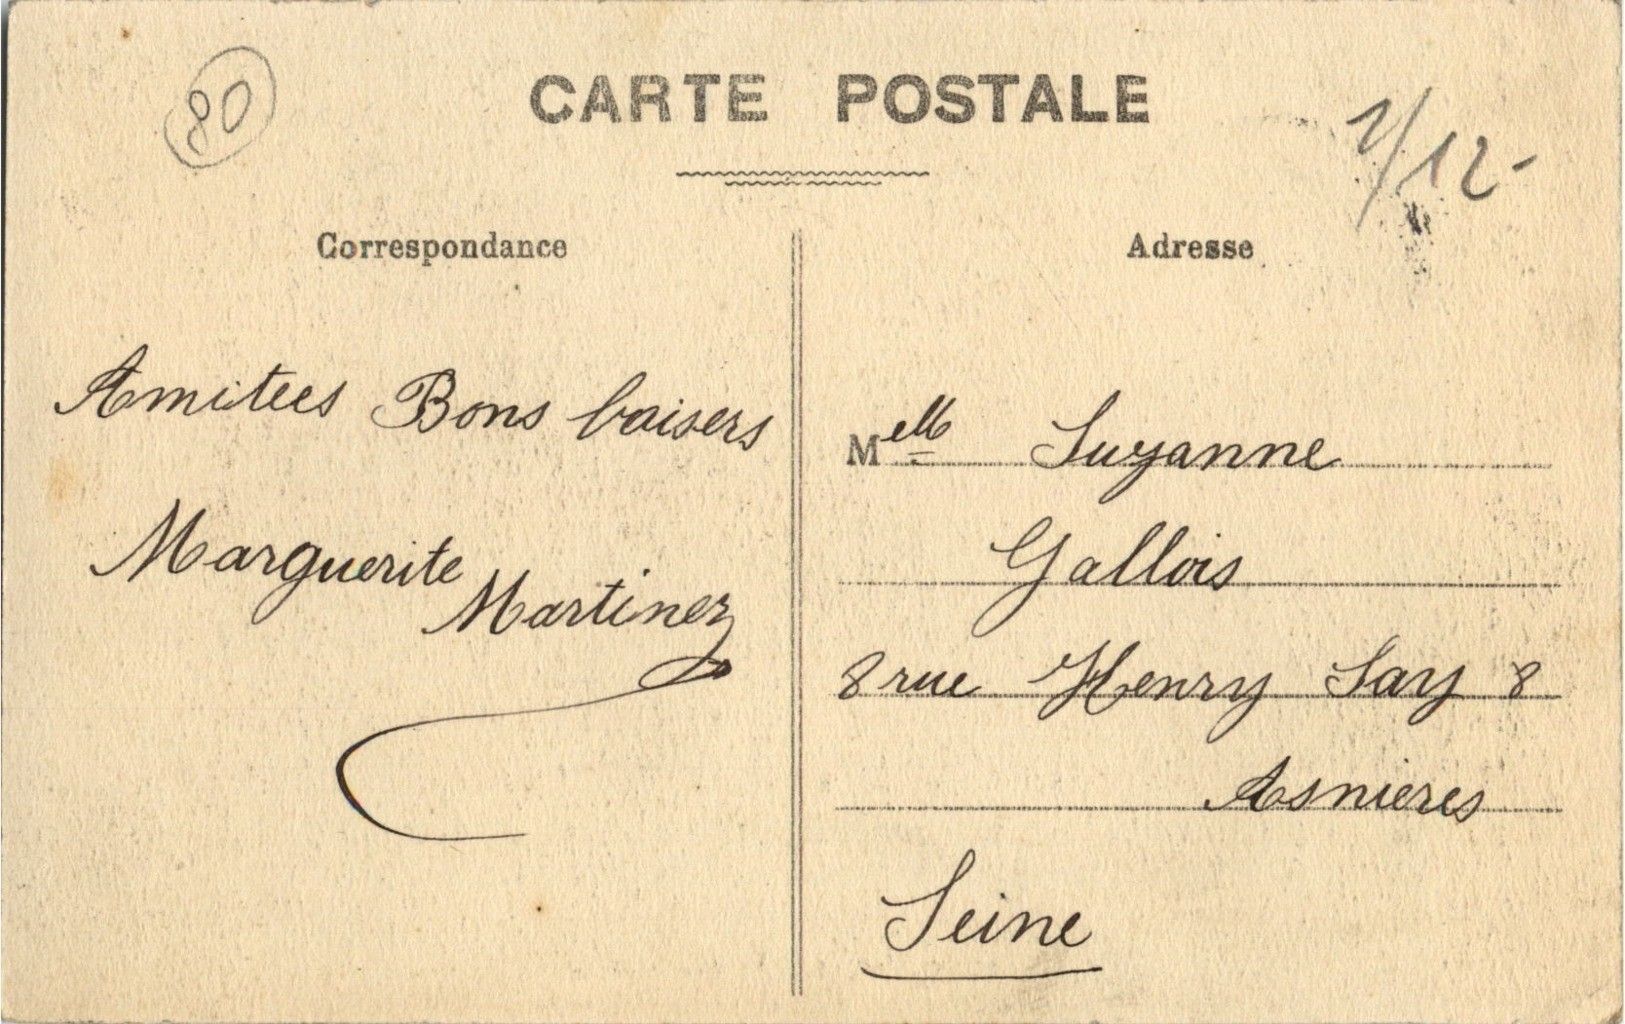 80
CARTE POSTALE
1/12-
Correspondance
Amitees Bons baisers
Marguerite
Martinez
Adresse
Melle Suzanne
Gallois
8 rue Henry Say 8
Asnieres
Seine